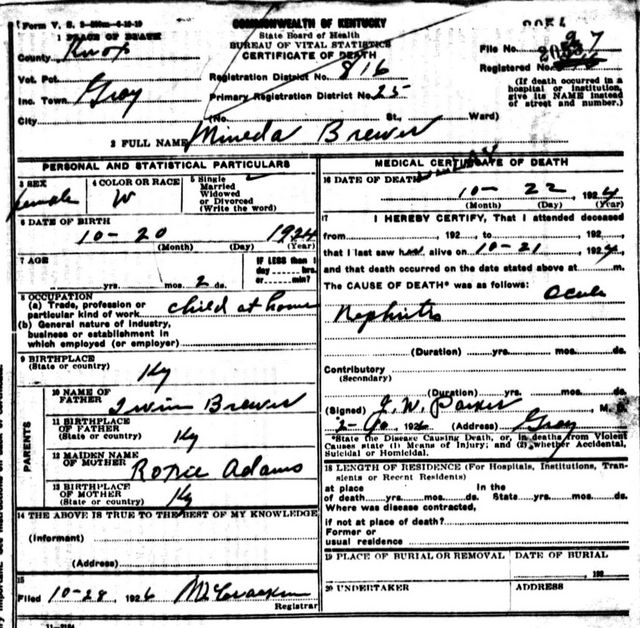 Form V. S.
COMMONWEALTH OF KENTUCKY
State Board of Health
BUREAU OF VITAL STATISTICS
CERTIFICATE OF DEATH
1 PLACE OF DEATH
County Knox
Vot. Pct.
Inc. Town Gray
City
Registration District No. 816
Primary Registration District No. 25
(No. St., Ward)
File No. 27
Registered No.
(If death occurred in a
hospital or institution,
give its NAME instead
of street and number.)
2 FULL NAME Mineda Brewer
PERSONAL AND STATISTICAL PARTICULARS
3 SEX
female
4 COLOR OR RACE
W
5 Single
Married
Widowed
or Divorced
(Write the word)
6 DATE OF BIRTH
10-20 1924
(Month) (Day) (Year)
7 AGE
yrs. mos. 2 ds.
IF LESS than 1
day hrs.
or min.
8 OCCUPATION
(a) Trade, profession or
particular kind of work child at home
(b) General nature of industry,
business or establishment in
which employed (or employer)
9 BIRTHPLACE
(State or country) Ky
PARENTS
10 NAME OF
FATHER Irvin Brewer
11 BIRTHPLACE
OF FATHER
(State or country) Ky
12 MAIDEN NAME
OF MOTHER Adams
13 BIRTHPLACE
OF MOTHER
(State or country) Ky
14 THE ABOVE IS TRUE TO THE BEST OF MY KNOWLEDGE
(Informant)
(Address)
15
Filed 10-28, 1926 McCracken
Registrar
MEDICAL CERTIFICATE OF DEATH
16 DATE OF DEATH
10-22, 1924
(Month) (Day) (Year)
17 I HEREBY CERTIFY, That I attended deceased
from , 192 , to , 192 ,
that I last saw h alive on 10-21, 1924,
and that death occurred on the date stated above at m.
The CAUSE OF DEATH* was as follows:
Acute
Nephritis
(Duration) yrs. mos. ds.
Contributory
(Secondary)
(Duration) yrs. mos. ds.
(Signed) J. W. Parker M. D.
, 192 (Address) Gray
*State the Disease Causing Death, or, in deaths from Violent
Causes state (1) Means of Injury; and (2) whether Accidental,
Suicidal or Homicidal.
18 LENGTH OF RESIDENCE (For Hospitals, Institutions, Tran-
sients or Recent Residents)
at place In the
of death yrs. mos. ds. State yrs. mos. ds.
Where was disease contracted,
if not at place of death?
Former or
usual residence
19 PLACE OF BURIAL OR REMOVAL
DATE OF BURIAL
, 192
20 UNDERTAKER
ADDRESS